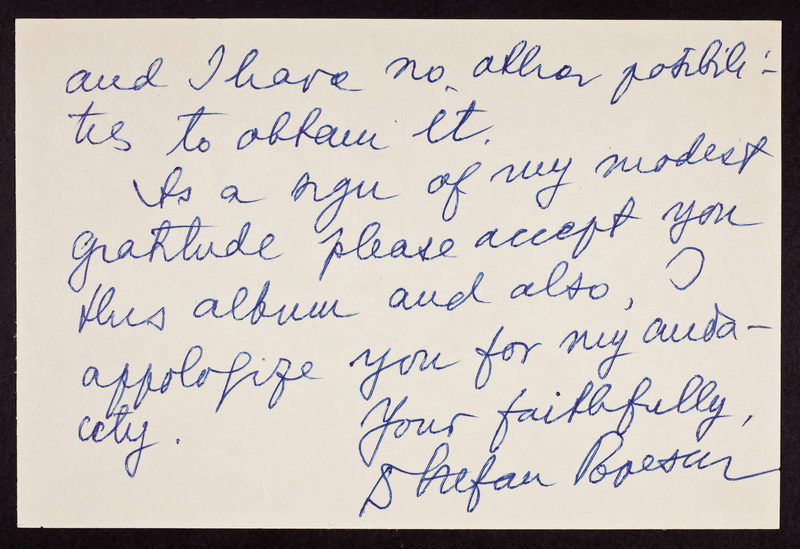 and I have no other possibili-
ties to obtain it.
As a sign of my modest
gratitude please accept you
this album and also, I
appologize you for my auda-
city.
Your faithfully,
Stefan